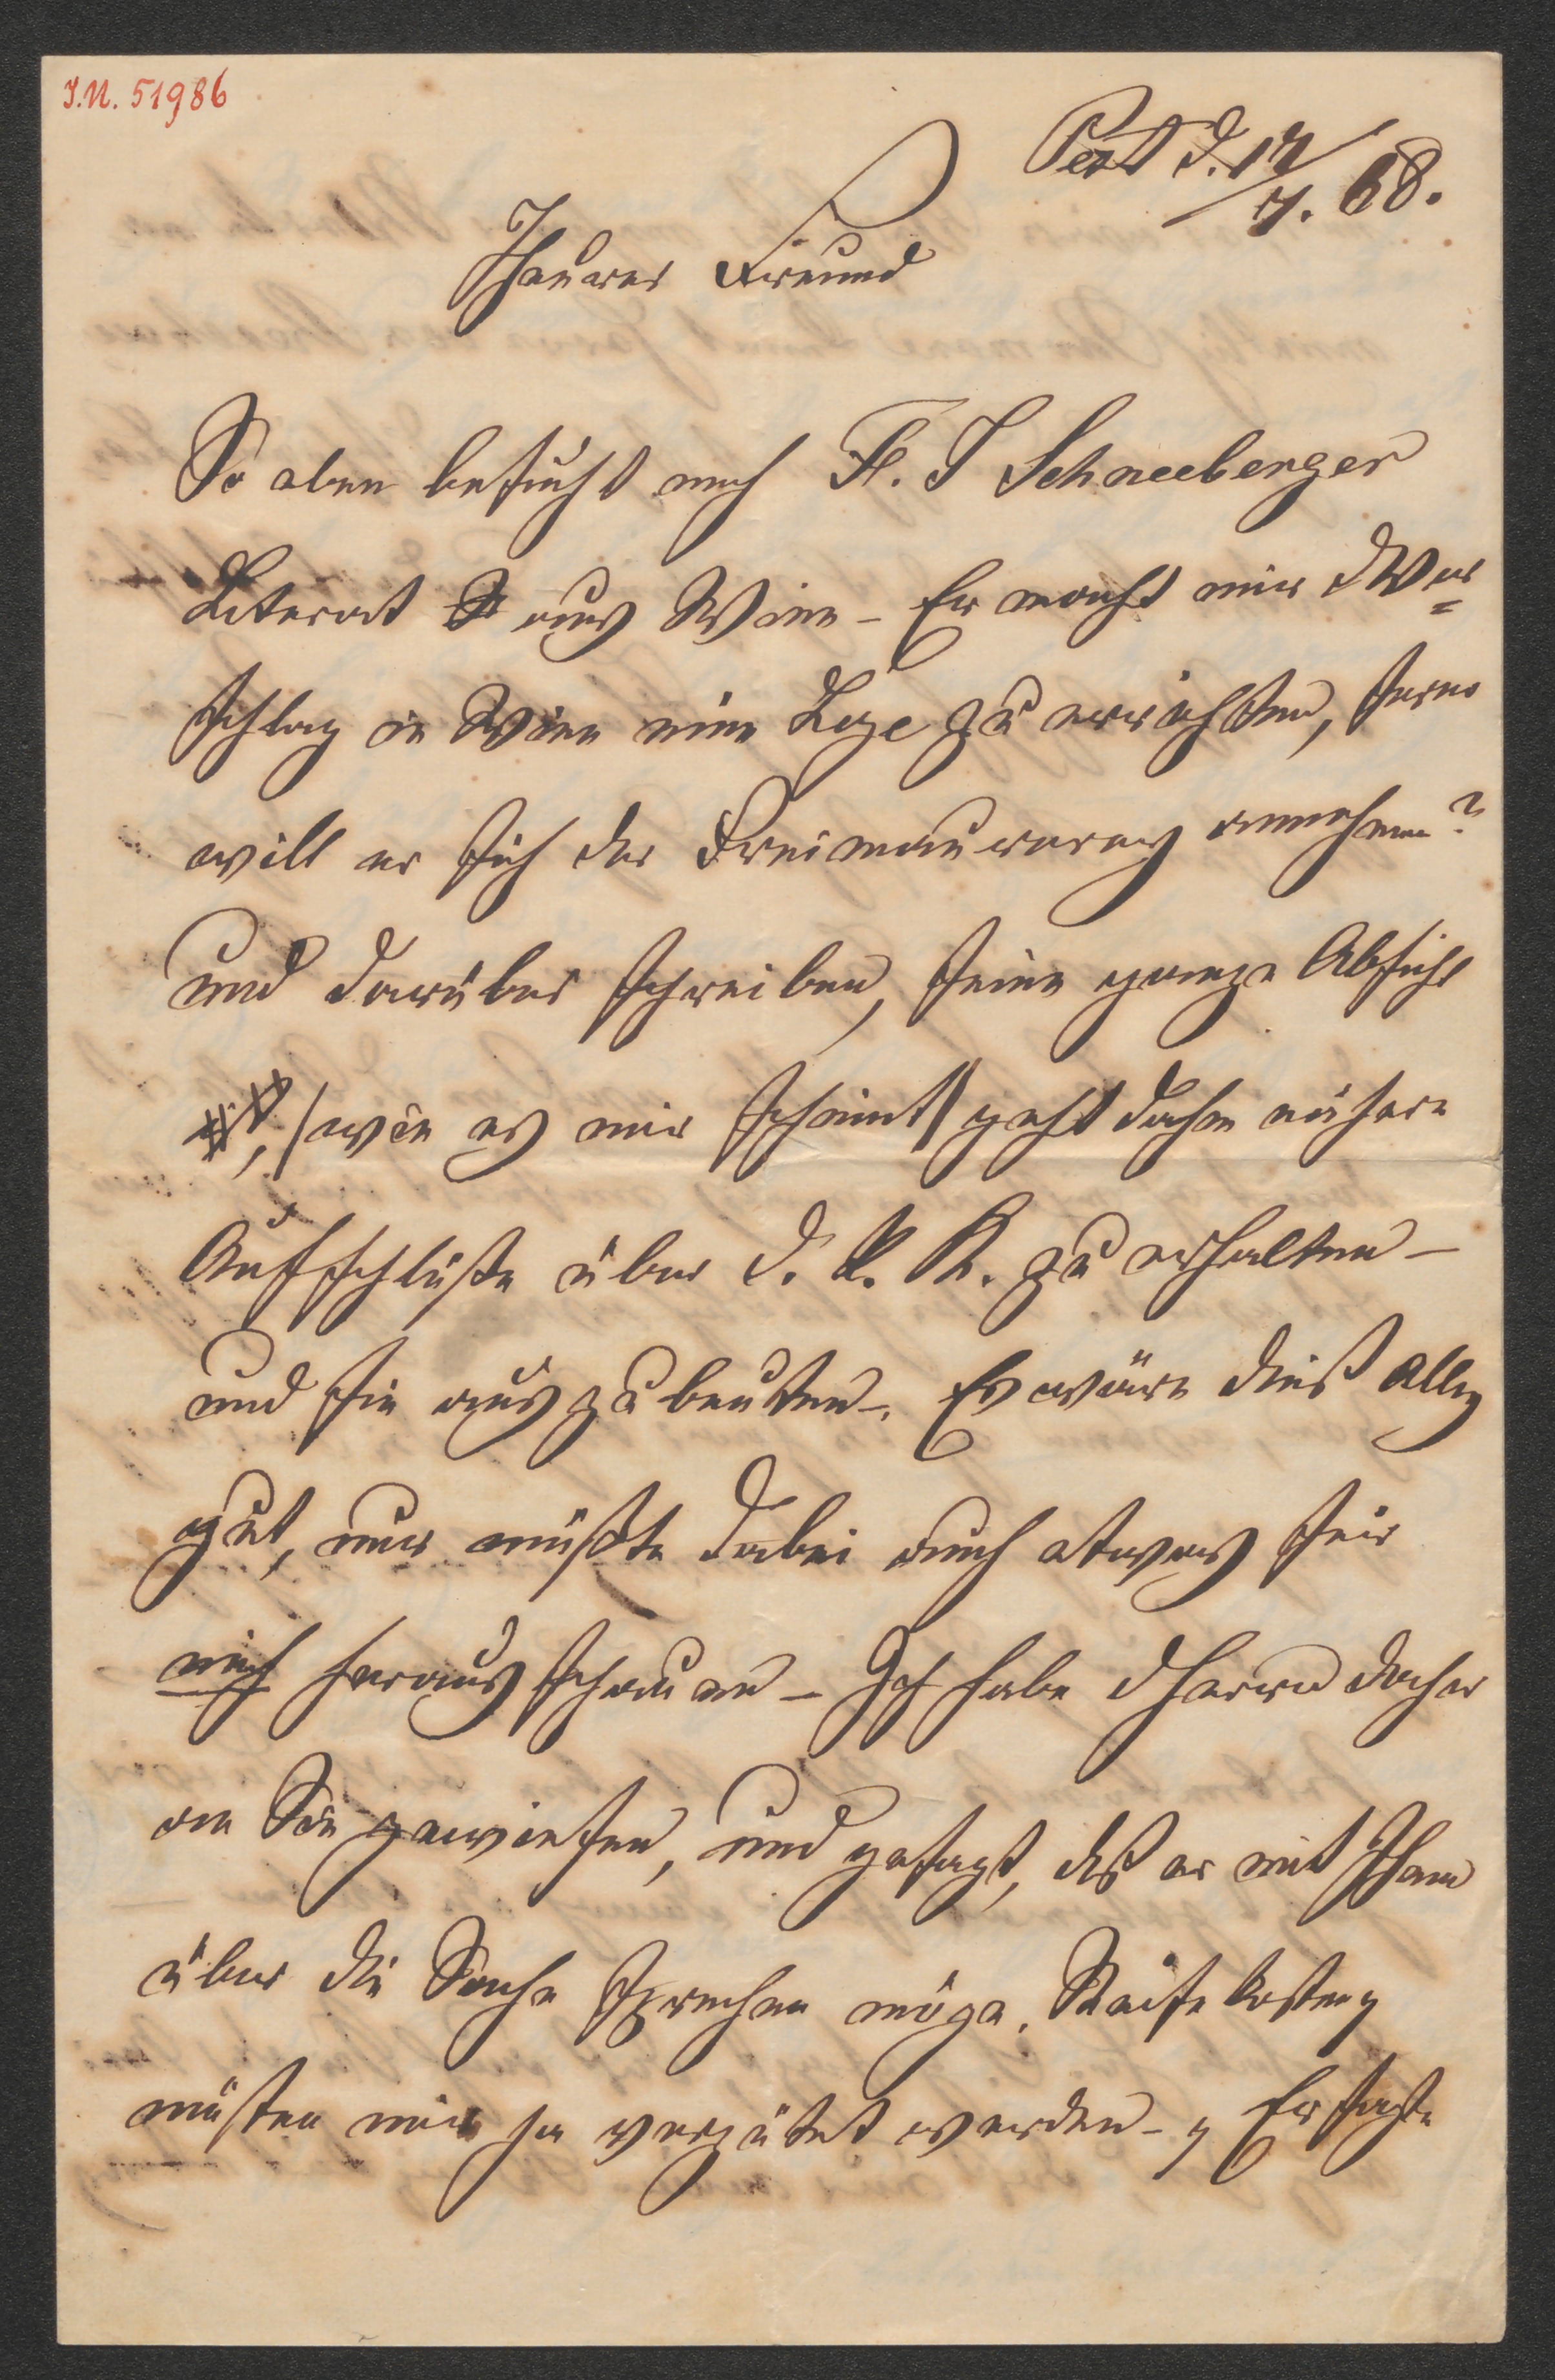 I.N. 51986
Pest d. 17/7. 68.
Theurer Freund
So eben besucht mich F. J Schneeberger
Literat aus Wien – Er macht mir d Vor=
schlag in Wien eine Loge zu errichten, ferner
will er sich der Freimaurerey annehmen?
und darüber schreiben, seine ganze Absicht
, /wie es mir scheint/ geht dahin nähere
Aufschlüße über d. k. K. zu erhalten –
und sie auszubeuten –. Es wäre dieß alles
gut, nur müßte dabei auch etwas für
mich herausschauen – Ich habe d Herrn daher
an Sie gewiesen, und gesagt, daß er mit Ihnen
über die Sache sprechen möge. Reisekosten
müsten mir ja vergütet werden – Er sagte